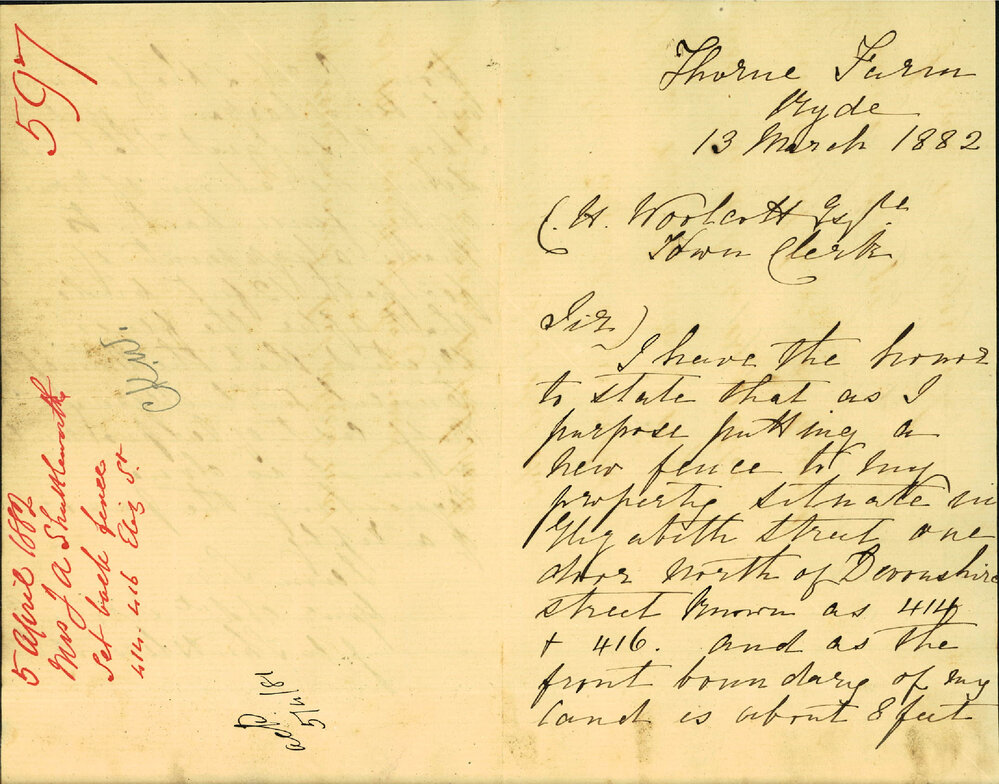 597
5 April 1882
Mrs J A Shuttleworth
Set back fence
414. 416 Eliz St
C.H.W.
Thorne Farm
Ryde
13 March 1882
C. H. Woolcott Esqre
Town Clerk
Sir)
I have the honor
to state that as I
purpose putting a
new fence to my
property situate in
Elizabeth Street one
door North of Devonshire
street Known as 414
+ 416. and as the
front boundary of my
land is about 8 feet